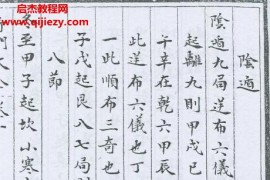 启杰教程网
www.qijiejy.com
陰遁
陰遁九局逆布六儀
起離九則甲戌巳
午辛在乾六甲辰
此逆布六儀也丁
一此順布三奇也
子戊起艮八七局則
八節
冬至甲子起坎小寒